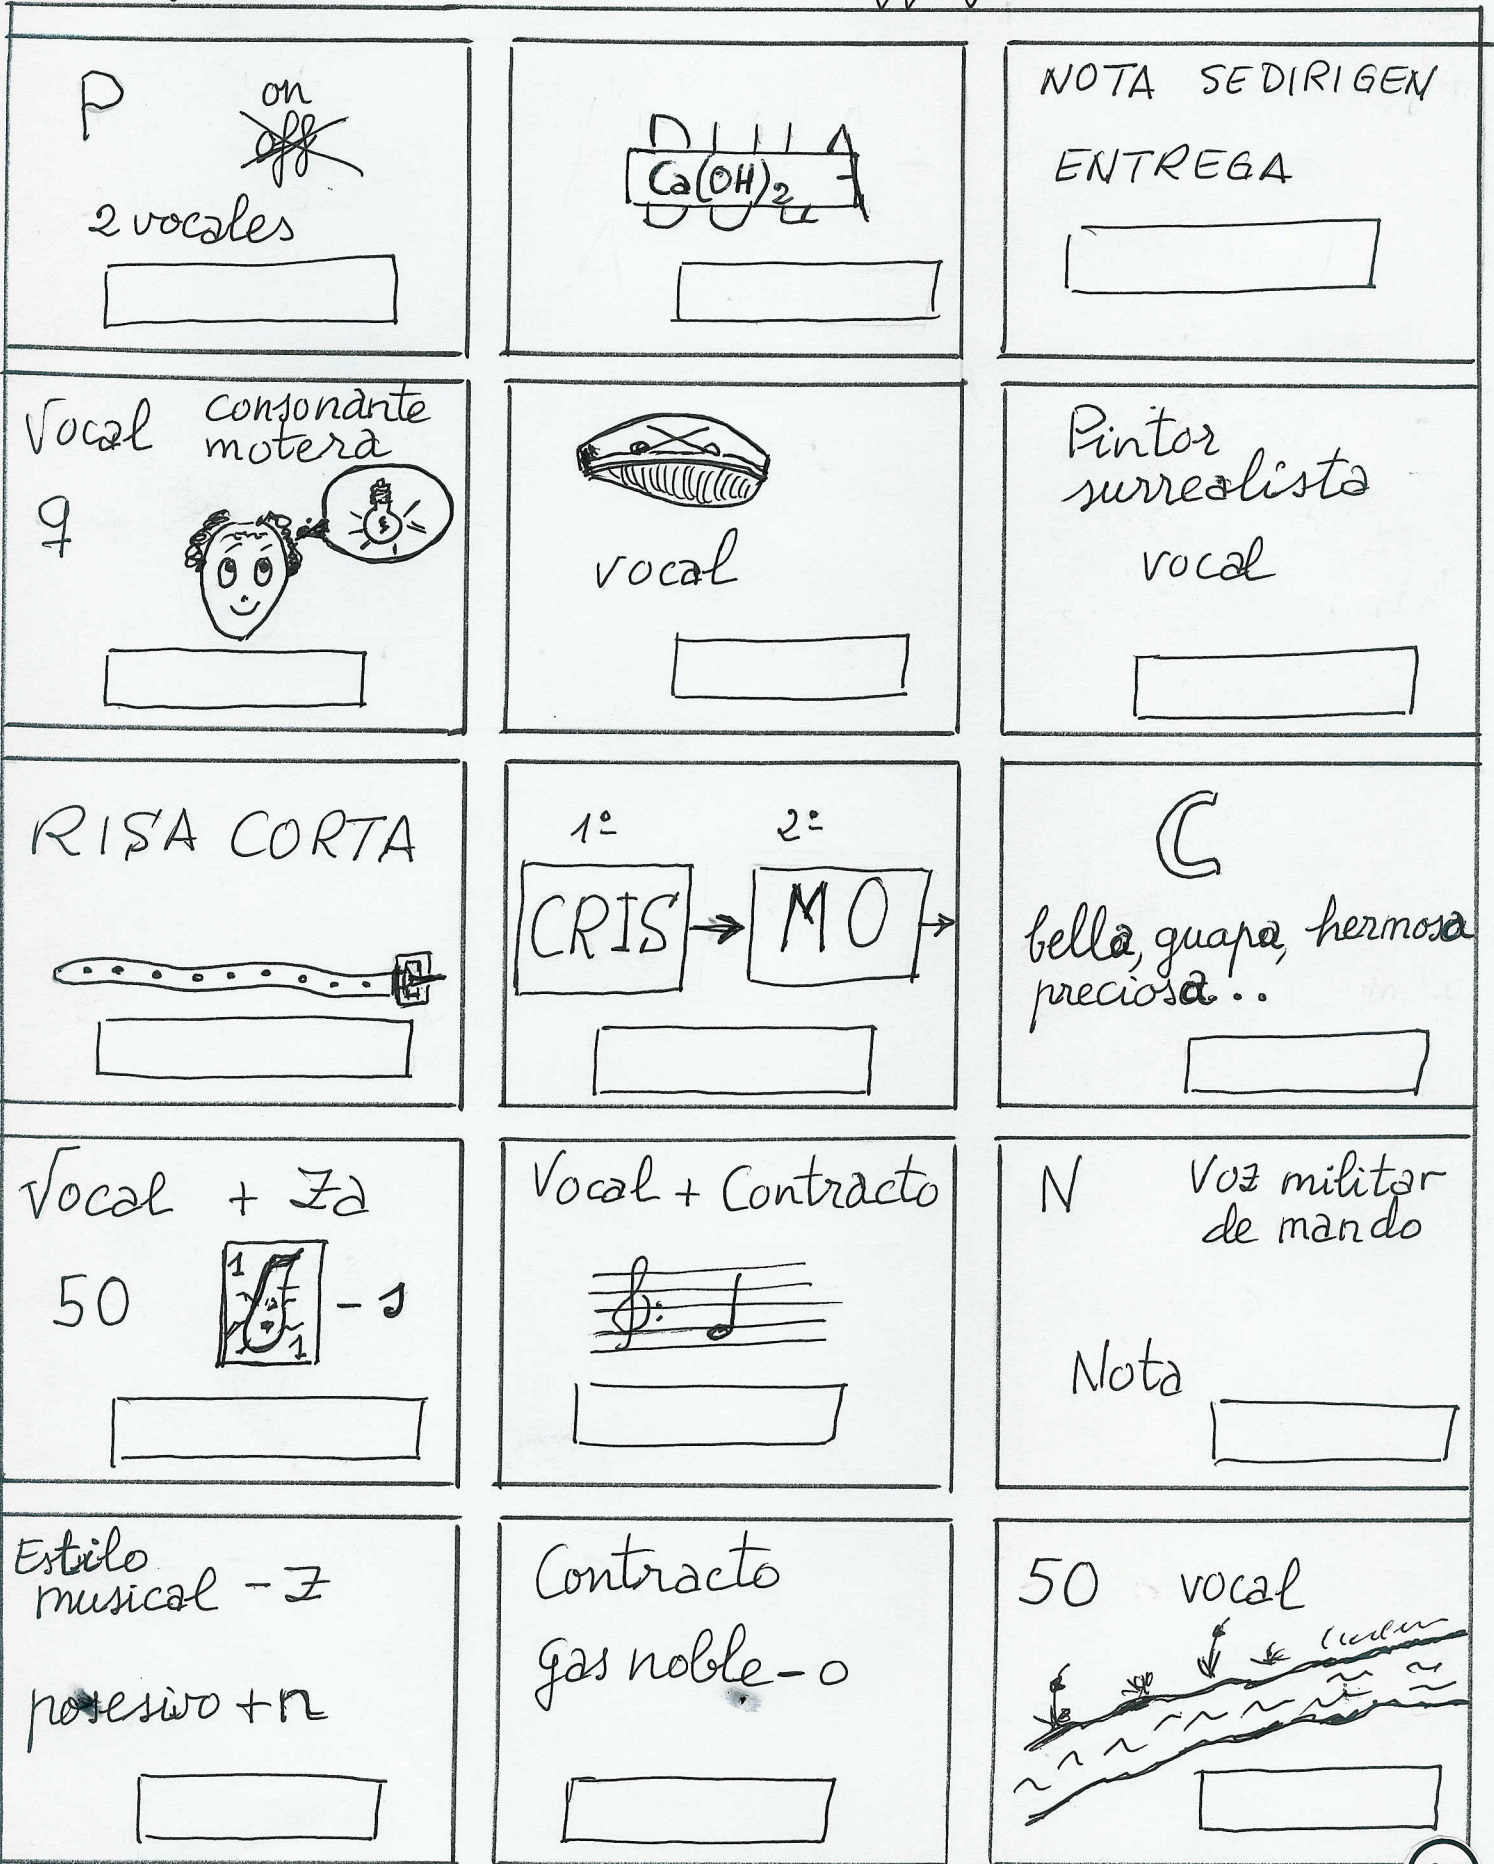 P
on
off
2 vocales
Ca(OH)2
NOTA SE DIRIGEN
ENTREGA
Vocal consonante
motera
q
vocal
Pintor
surrealista
vocal
RISA CORTA
1º 2º
CRIS MO
C
bella, guapa, hermosa
preciosa...
Vocal + Za
50 1 1 - s
Vocal + Contracto
N Voz militar
de mando
Nota
Estilo
musical - Z
posesivo + n
Contracto
gas noble - o
50 vocal